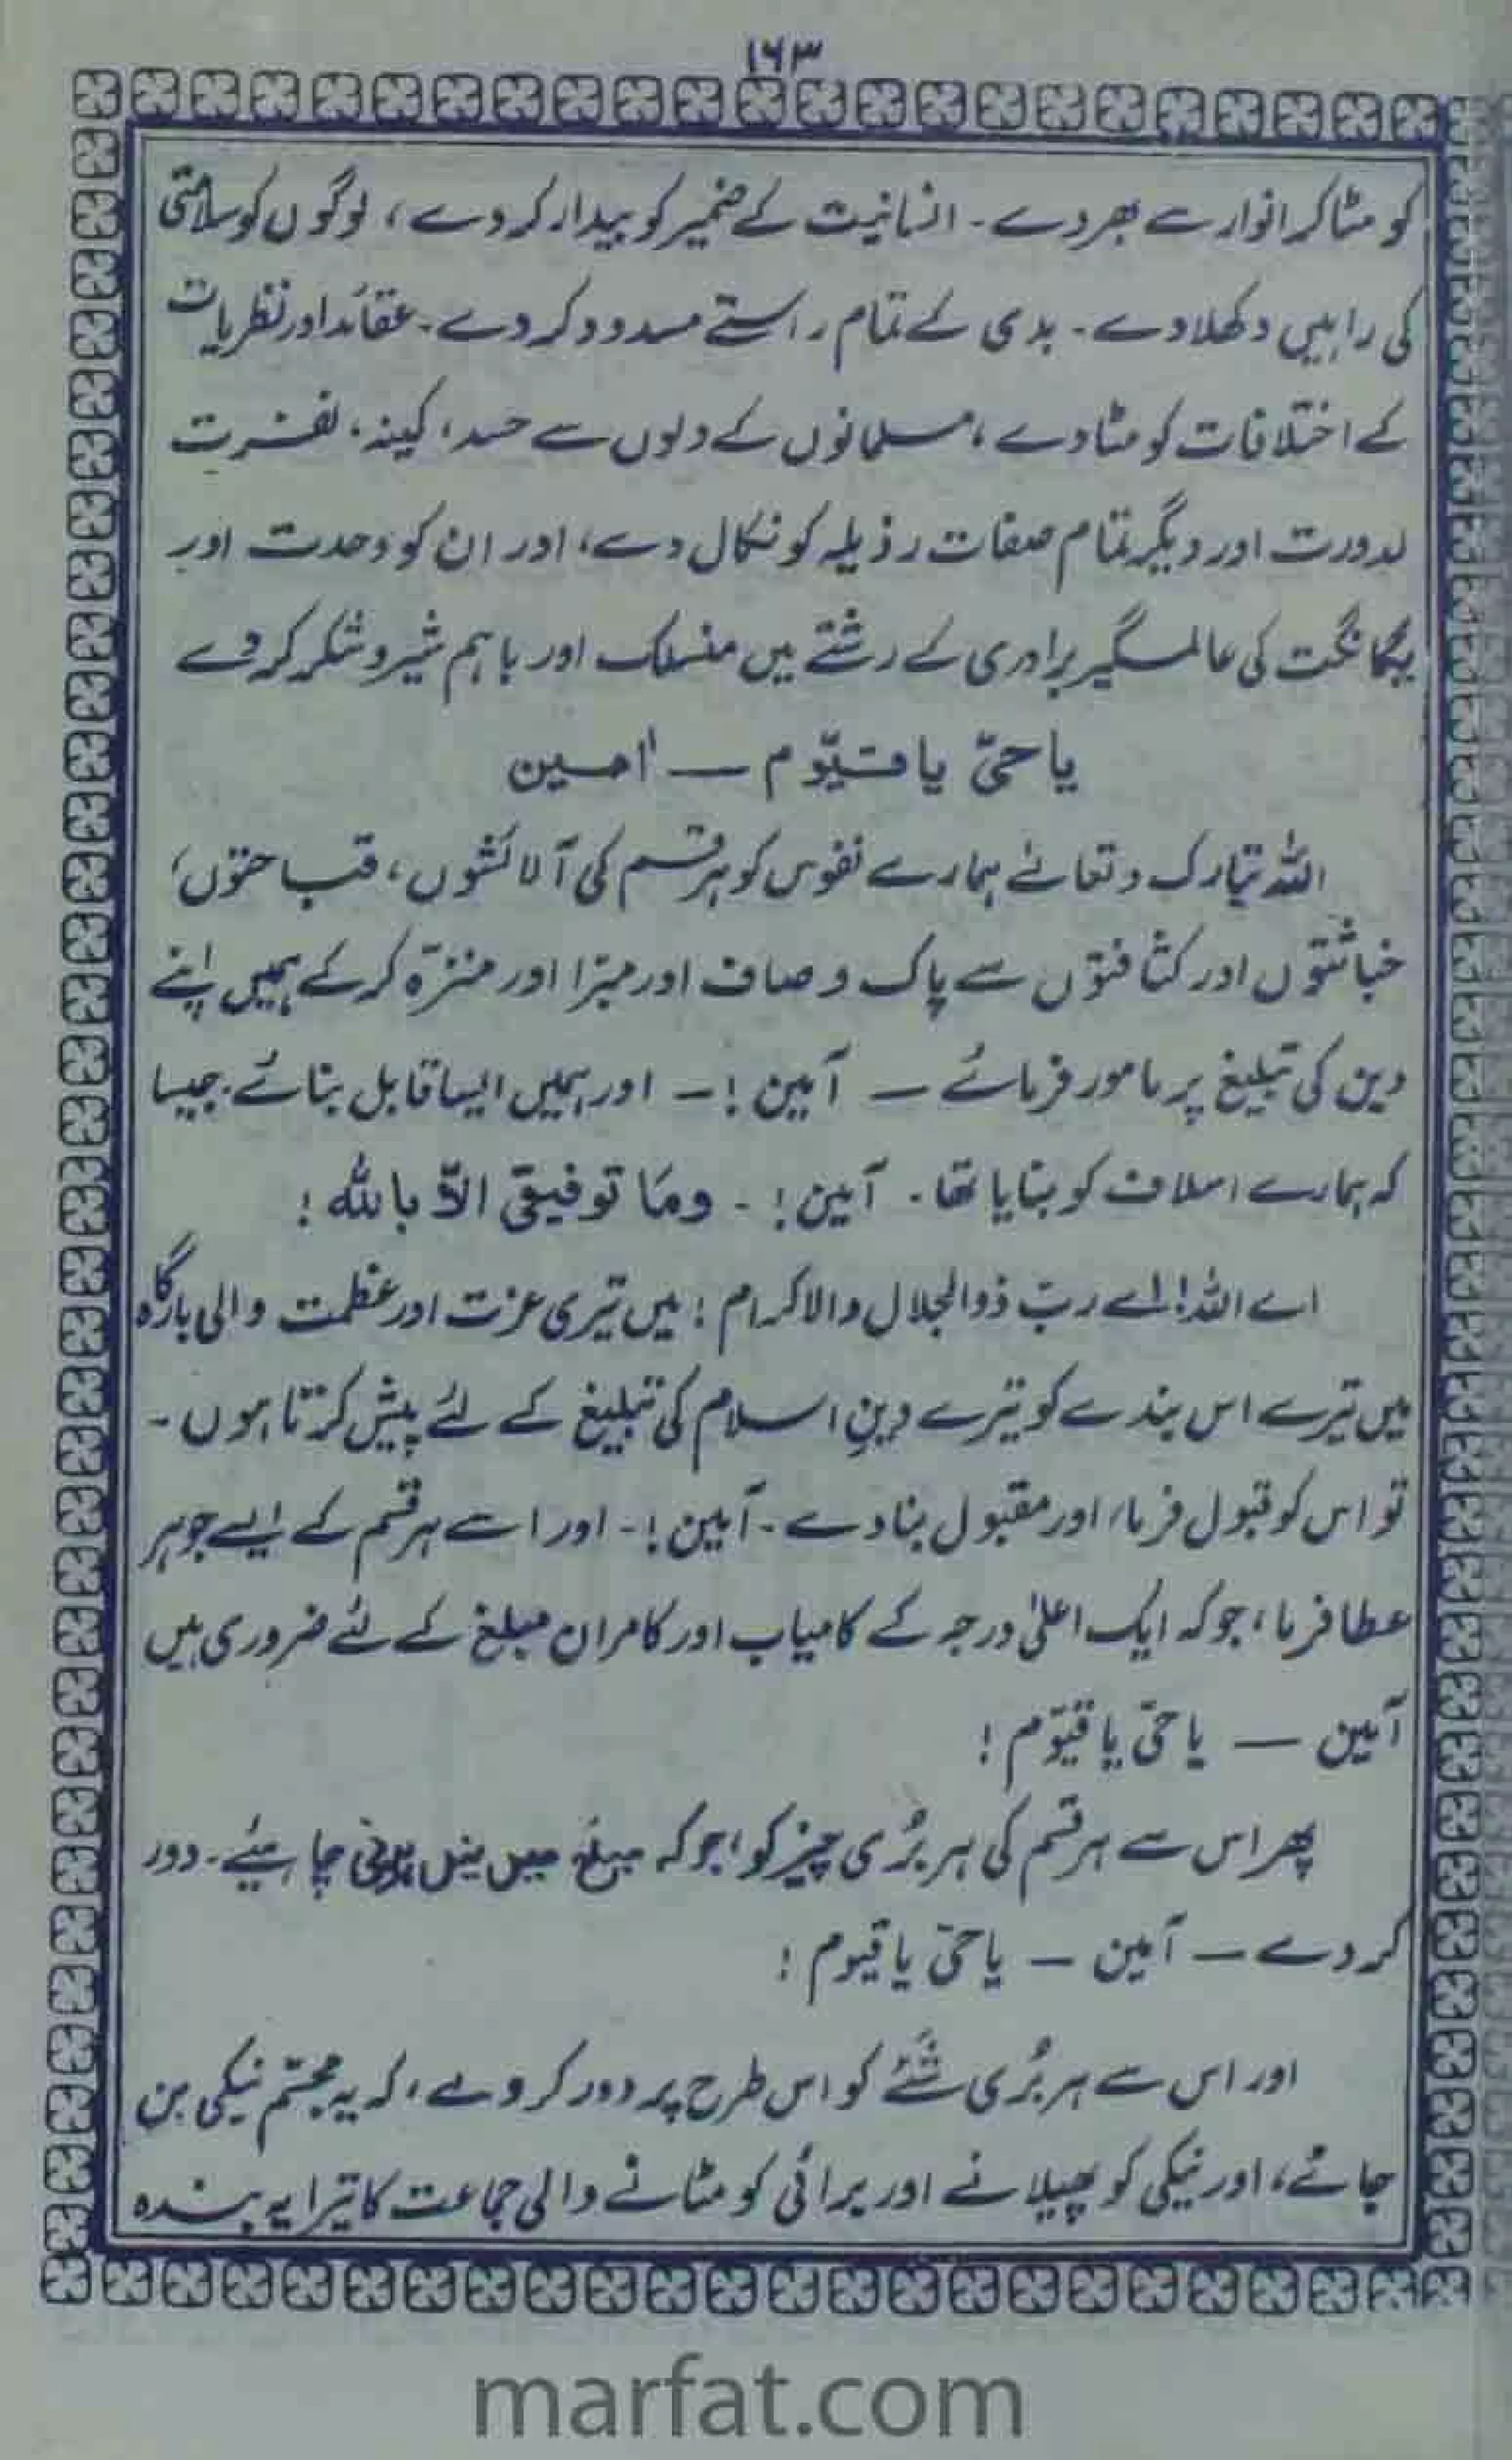 ۱۶۳
کو مٹا کر انوار سے بھر دے ۔ انسانیت کے ضمیر کو بیدار کر دے ، لوگوں کو سلامتی
کی راہیں دکھلا دے ۔ بدی کے تمام راستے مسدود کر دے ۔ عقائد اور نظریات
کے اختلافات کو مٹا دے ، مسلمانوں کے دلوں سے حسد ، کینہ ، نفرت
کدورت اور دیگر تمام صفات رذیلہ کو نکال دے ، اور ان کو وحدت اور
یگانگت کی عالمگیر برادری کے رشتے میں منسلک اور باہم شیر و شکر کر دے
یا حیّ یا قیّوم — اٰمین
اللہ تبارک و تعالےٰ ہمارے نفوس کو ہر قسم کی آلائشوں ، قباحتوں ،
خباثتوں اور کثافتوں سے پاک و صاف اور مبّرا اور منزّہ کر کے ہمیں اپنے
دین کی تبلیغ پر مامور فرمائے — آمین ! ۔ اور ہمیں ایسا قابل بنائے ۔ جیسا
کہ ہمارے اسلاف کو بنایا تھا ۔ آمین ! ۔ ومَا توفیقی الاّ باللہ !
اے اللہ ! اے ربّ ذوالجلال والاکرام ! میں تیری عزت اور عظمت والی بارگاہ
میں تیرے اس بندے کو تیرے دینِ اسلام کی تبلیغ کے لئے پیش کرتا ہوں ۔
تو اس کو قبول فرما ، اور مقبول بنا دے ۔ آمین ! ۔ اور اسے ہر قسم کے ایسے جوہر
عطا فرما ، جو کہ ایک اعلیٰ درجہ کے کامیاب اور کامران مبلغ کے لئے ضروری ہیں
آمین — یا حیّ یا قیّوم !
پھر اس سے ہر قسم کی ہر بُری چیز کو ، جو کہ مبلغ میں نہیں ہونی چاہیئے ۔ دور
کر دے — آمین — یا حیّ یا قیوم !
اور اس سے ہر بُری شَئے کو اس طرح پر دور کر دے ، کہ یہ مجسّم نیکی بن
جائے ، اور نیکی کو پھیلانے اور برائی کو مٹانے والی جماعت کا تیرا یہ بندہ
marfat.com